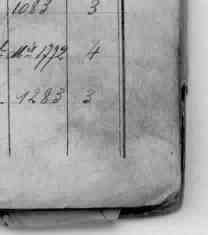 1083 3
1792 4
1283 3